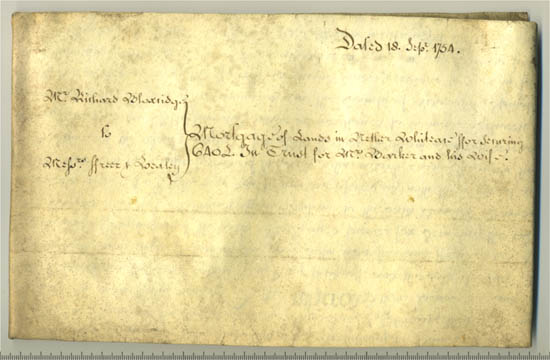 Dated 18. Sepr. 1754.
Mr. Richard
to
Messrs. ffreer &
Mortgage of Lands in Nether Whitacre for securing
640L. In Trust for Mr. Barker and his Wife.